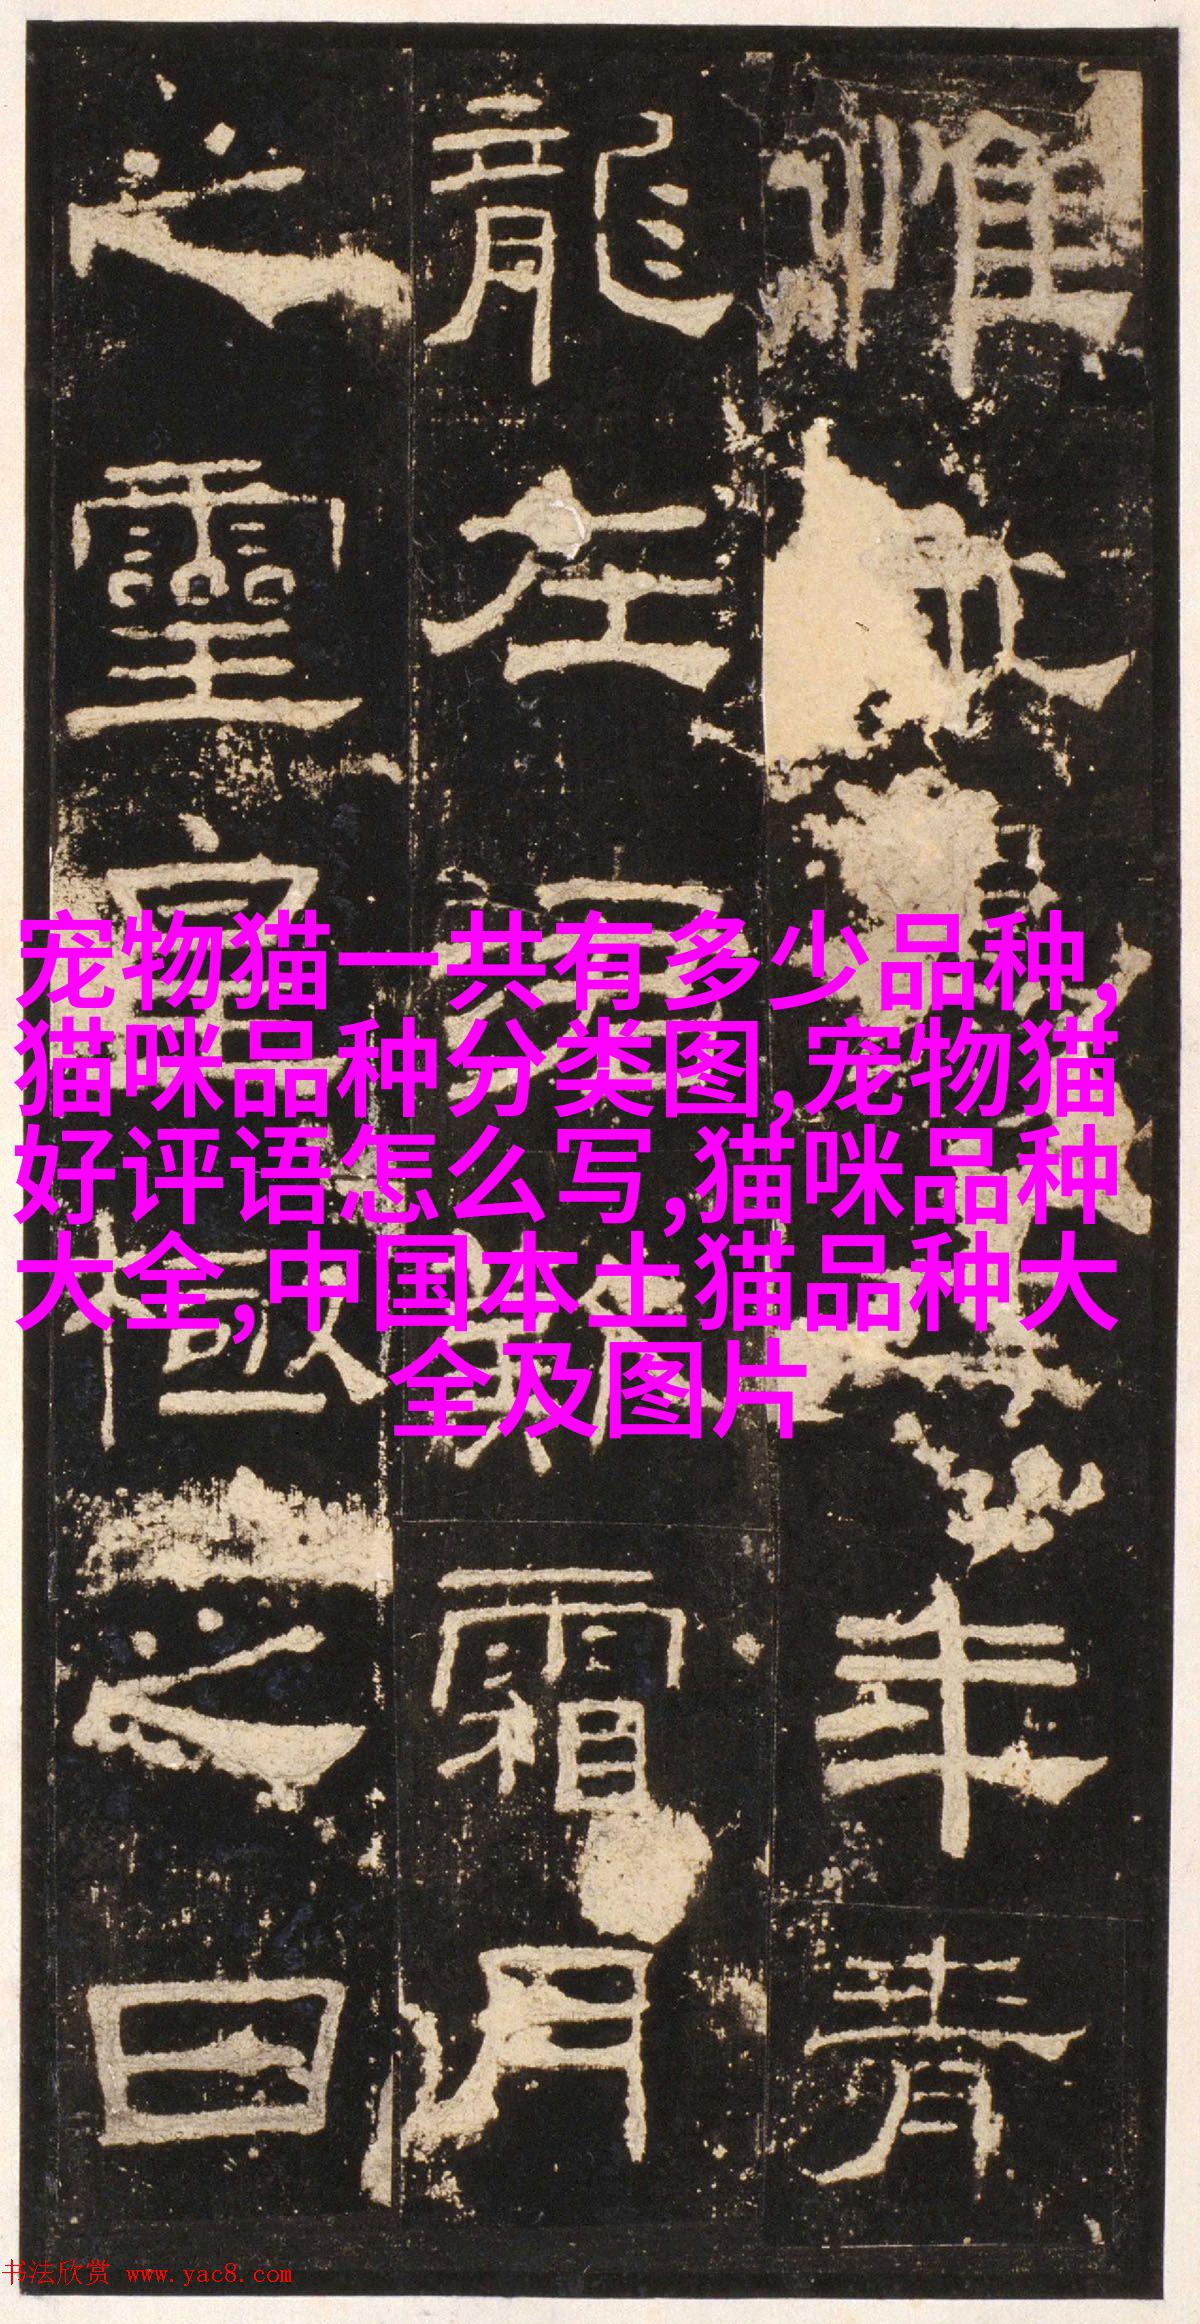 惟年青
龍在涒歎霜月
之靈皇極之日
宠物猫一共有多少品种,
猫咪品种分类图,宠物猫
好评语怎么写,猫咪品种
大全,中国本土猫品种大
全及图片
书法欣赏 www.yac8.com